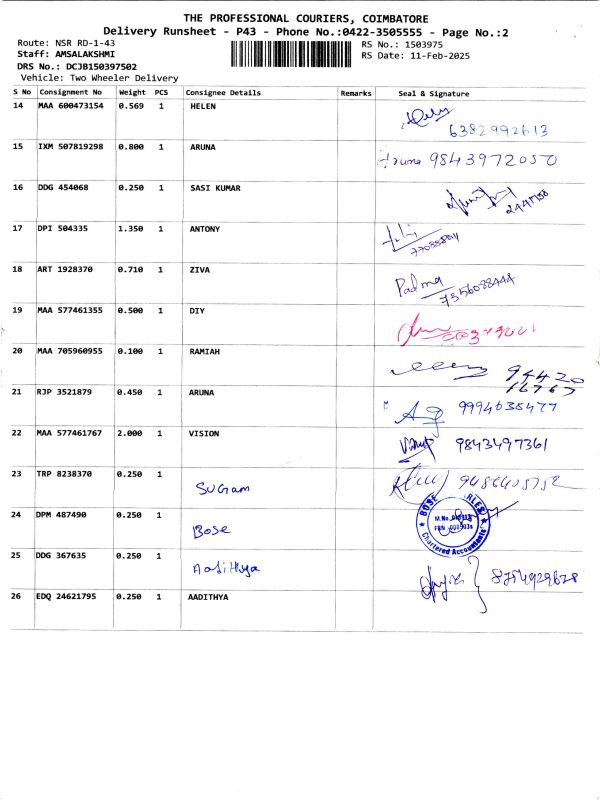 THE PROFESSIONAL COURIERS, COIMBATORE
Delivery Runsheet - P43 - Phone No.:0422-3505555 - Page No.:2
Route: NSR RD-1-43 RS No.: 1503975
Staff: AMSALAKSHMI RS Date: 11-Feb-2025
DRS No.: DCJB150397502
Vehicle: Two Wheeler Delivery
S No Consignment No Weight PCS Consignee Details Remarks Seal & Signature
14 MAA 600473154 0.569 1 HELEN
6382992613
15 IXM 507819298 0.800 1 ARUNA Aruna 9843972050
16 DDG 454068 0.250 1 SASI KUMAR
17 DPI 504335 1.350 1 ANTONY
18 ART 1928370 0.710 1 ZIVA Padma
7556088444
19 MAA 577461355 0.500 1 DIY
20 MAA 705960955 0.100 1 RAMIAH 94420
16767
21 RJP 3521879 0.450 1 ARUNA 9994635477
22 MAA 577461767 2.000 1 VISION 9843497361
23 TRP 8238370 0.250 1 Sugam 9486405752
24 DPM 487490 0.250 1 Bose
Chartered Accountants
25 DDG 367635 0.250 1 Aadithya 8754929678
26 EDQ 24621795 0.250 1 AADITHYA